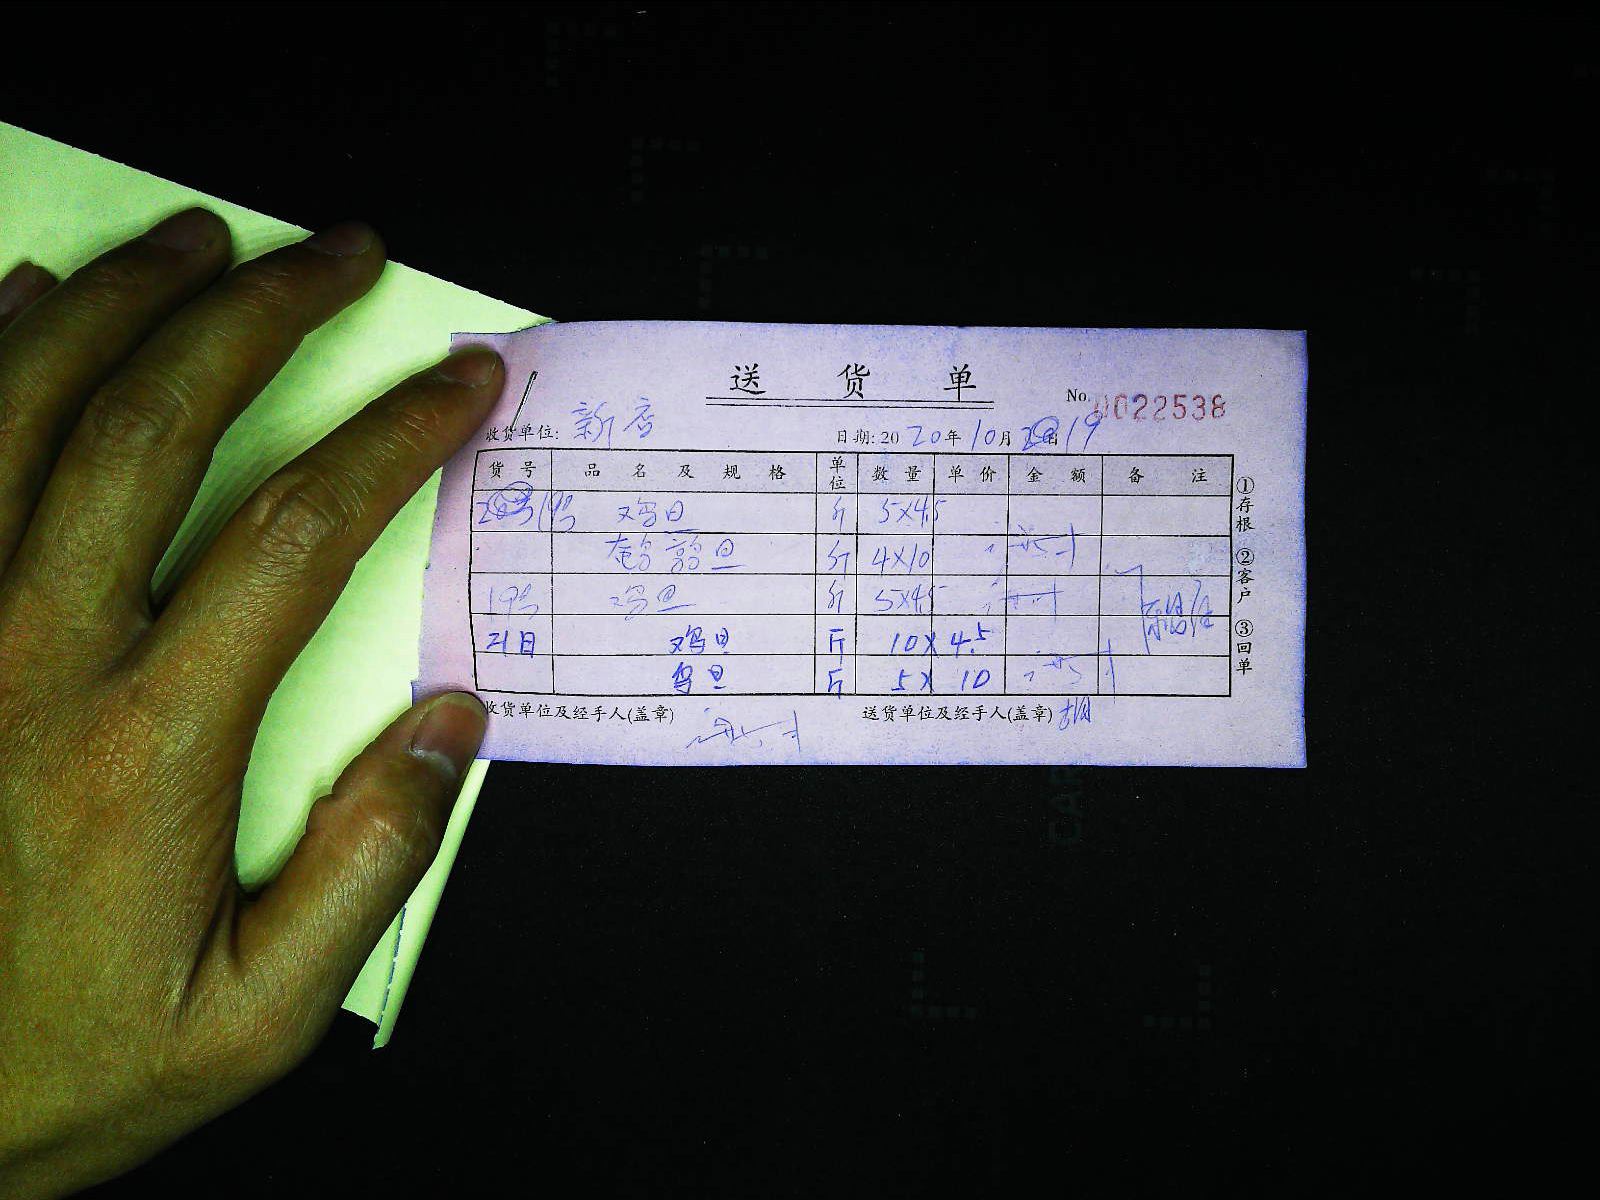 送 货 单
No. 0022538
收货单位: 新店
日期: 2020年10月19
货号 品名及规格 单位 数量 单价 金额 备注
19号 鸡旦 斤 5×4.5
鹌鹑旦 斤 4×10
19号 鸡旦 斤 5×4.5
21日 鸡旦 斤 10×4.5
鸟旦 斤 5×10
①存根 ②客户 ③回单
收货单位及经手人(盖章)
送货单位及经手人(盖章) 胡